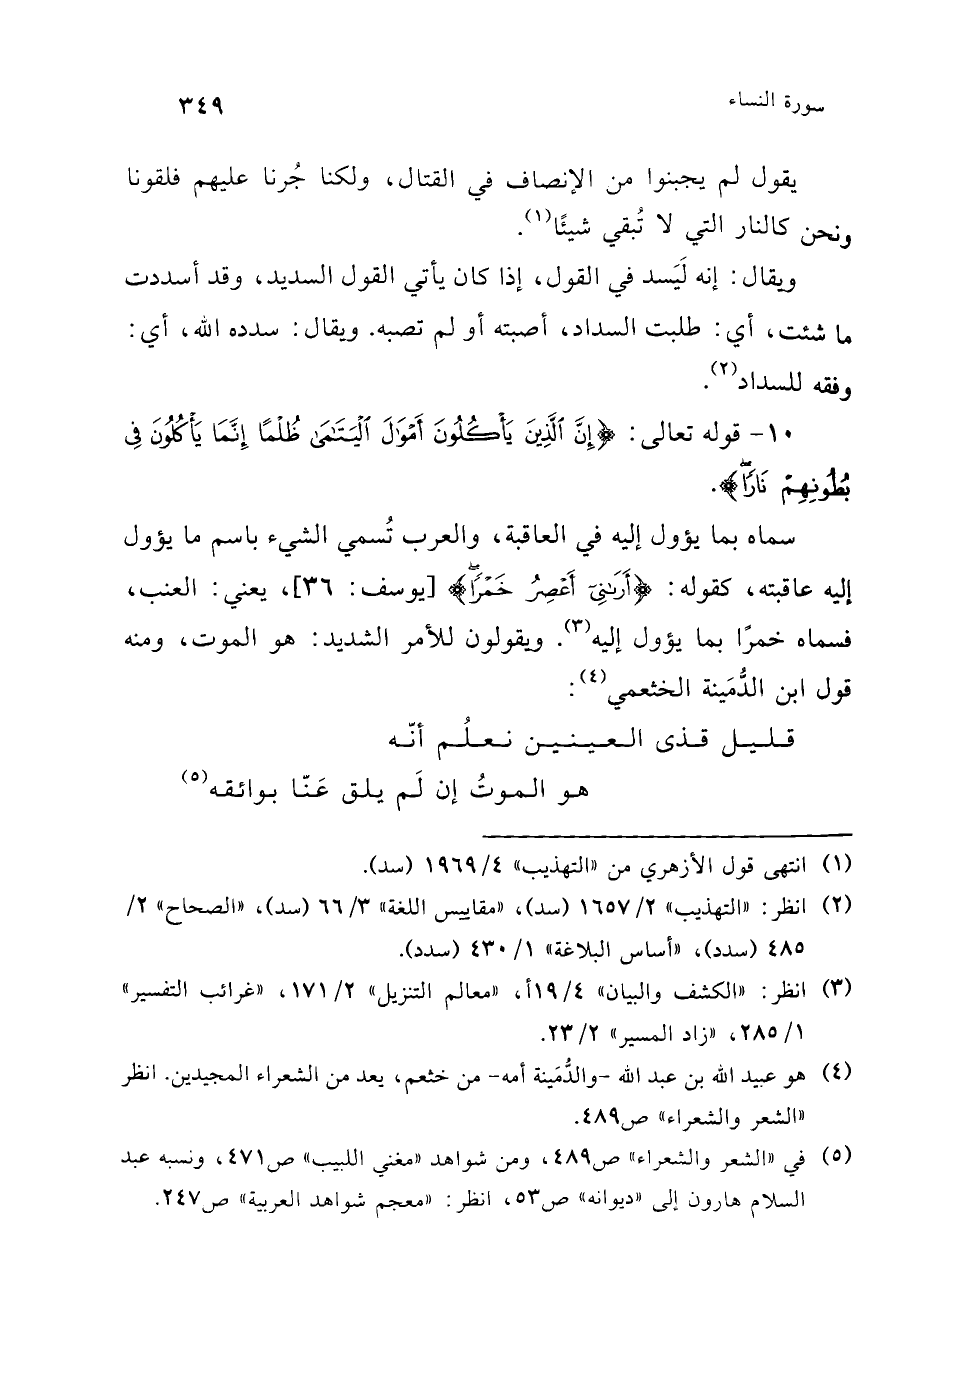 سورة النساء ٣٤٩
يقول لم يجبنوا من الإنصاف في القتال، ولكنا جُرنا عليهم فلقونا
ونحن كالنار التي لا تُبقي شيئًا(١).
ويقال: إنه لَيَسد في القول، إذا كان يأتي القول السديد، وقد أسددت
ما شئت، أي: طلبت السداد، أصبته أو لم تصبه. ويقال: سدده الله، أي:
وفقه للسداد(٢).
١٠- قوله تعالى: ﴿إِنَّ ٱلَّذِينَ يَأْكُلُونَ أَمْوَٰلَ ٱلْيَتَٰمَىٰ ظُلْمًا إِنَّمَا يَأْكُلُونَ فِى
بُطُونِهِمْ نَارًاۖ﴾.
سماه بما يؤول إليه في العاقبة، والعرب تُسمي الشيء باسم ما يؤول
إليه عاقبته، كقوله: ﴿أَرَىٰنِىٓ أَعْصِرُ خَمْرًاۖ﴾ [يوسف: ٣٦]، يعني: العنب،
فسماه خمرًا بما يؤول إليه(٣). ويقولون للأمر الشديد: هو الموت، ومنه
قول ابن الدُّمَينة الخثعمي(٤):
قليل قذى العينين نعلُم أنّه
هو الموتُ إن لَم يلق عَنّا بوائقه(٥)
(١) انتهى قول الأزهري من «التهذيب» ٤/ ١٩٦٩ (سد).
(٢) انظر: «التهذيب» ٢/ ١٦٥٧ (سد)، «مقاييس اللغة» ٣/ ٦٦ (سد)، «الصحاح» ٢/
٤٨٥ (سدد)، «أساس البلاغة» ١/ ٤٣٠ (سدد).
(٣) انظر: «الكشف والبيان» ٤/ ١٩أ، «معالم التنزيل» ٢/ ١٧١، «غرائب التفسير»
١/ ٢٨٥، «زاد المسير» ٢/ ٢٣.
(٤) هو عبيد الله بن عبد الله -والدُّمَينة أمه- من خثعم، يعد من الشعراء المجيدين. انظر
«الشعر والشعراء» ص٤٨٩.
(٥) في «الشعر والشعراء» ص٤٨٩، ومن شواهد «مغني اللبيب» ص٤٧١، ونسبه عبد
السلام هارون إلى «ديوانه» ص٥٣، انظر: «معجم شواهد العربية» ص٢٤٧.